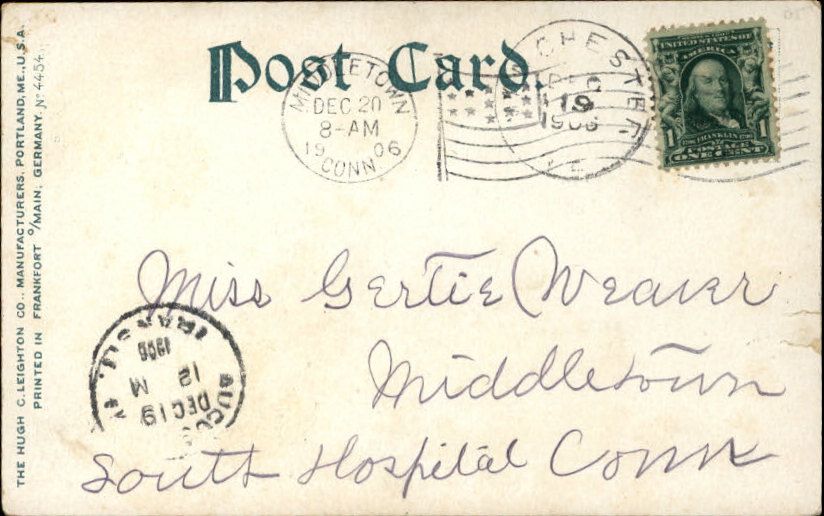 THE HUGH C. LEIGHTON CO., MANUFACTURERS, PORTLAND, ME., U.S.A.
PRINTED IN FRANKFORT O/MAIN, GERMANY. No 4454
Post Card.
MIDDLETOWN
DEC 20
8-AM
19 06
CONN.
CHESTER
DEC
19
1906
UNITED STATES OF
AMERICA
FRANKLIN
1 POSTAGE 1
ONE CENT
Miss Gertie Weaver
Middletown
South Hospital Conn
TRANSIT
1906
12 M
DEC 19